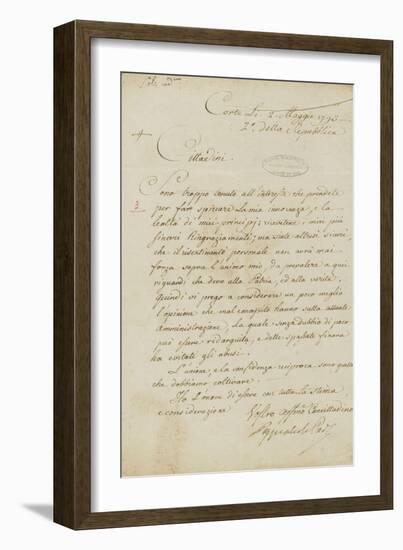 Corte li 2. Maggio 1793
2.º della Repubblica
Cittadini
3
Sono troppo tenuto all'interesse che prendete
per far spiccare la mia innocenza, e la
lealtà di miei principj; ricevetene i miei più
sinceri Ringraziamenti; ma siate altresì sicuri
che il risentimento personale non avrà mai
forza sopra l'animo mio, da prevalere a quei
riguardi che devo alla Patria, ed alla verità.
Quindi vi prego a considerare un poco meglio
l'opinione che mal concepita hanno sulla attuale
Amministrazione, la quale senza dubbio di
può essere redarguita, e delle spogliate finora
ha evitati gli abusi.
L'unione, e la confidenza reciproca sono quelle
che dobbiamo coltivare.
Ho l'onore di essere con tutta la stima
e considerazione
Vostro Concittadino
Pasquale de Paoli